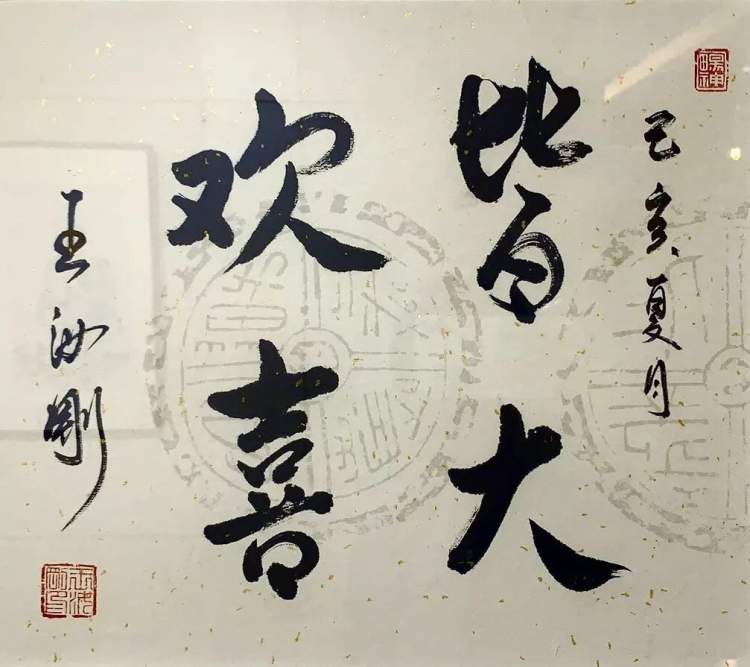 己亥夏月
皆大
欢喜
王汝刚